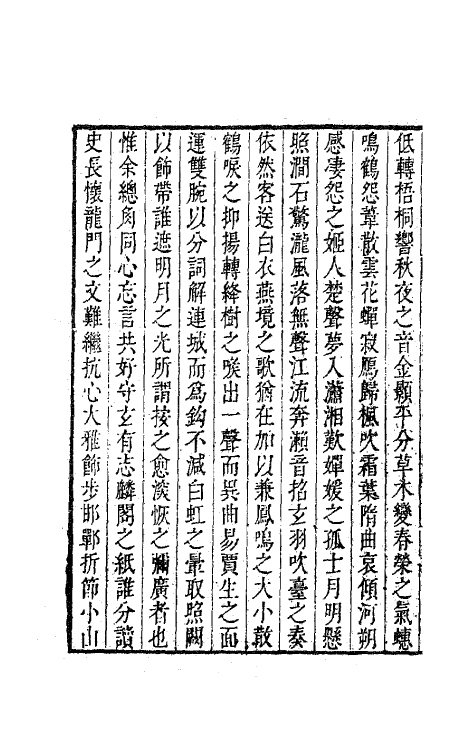 低轉梧桐響秋夜之音金顥平分草木變春榮之氣蟪
鳴鶴怨葦散雲花蟬寂鴈歸楓吹霜葉隋曲哀傾河朔
感凄怨之姬人楚聲夢入瀟湘歎嬋媛之孤士月明懸
照澗石驚瀧風落無聲江流奔瀨音招玄羽吹臺之奏
依然客送白衣燕境之歌猶在加以兼鳳鳴之大小散
鶴唳之抑揚轉絳樹之喉出一聲而異曲易賈生之面
運雙腕以分詞解連城而爲鈎不減白虹之景取照闕
以飾帶誰遮明月之光所謂按之愈淡恢之彌廣者也
惟余總角同心忘言共好守玄有志麟閣之紙誰分讀
史長懷龍門之文難繼抗心大雅飾步邯鄲折節小山